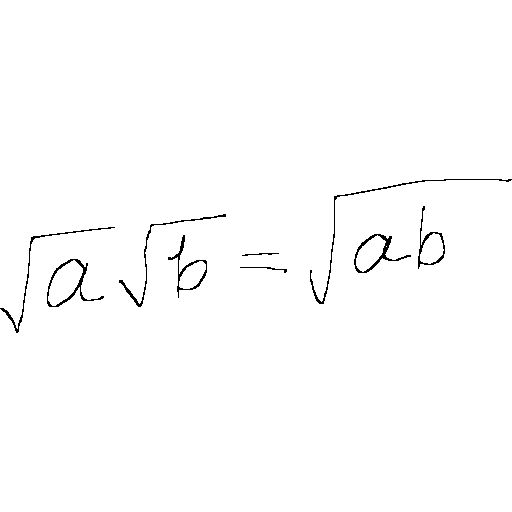 √a √b = √ab